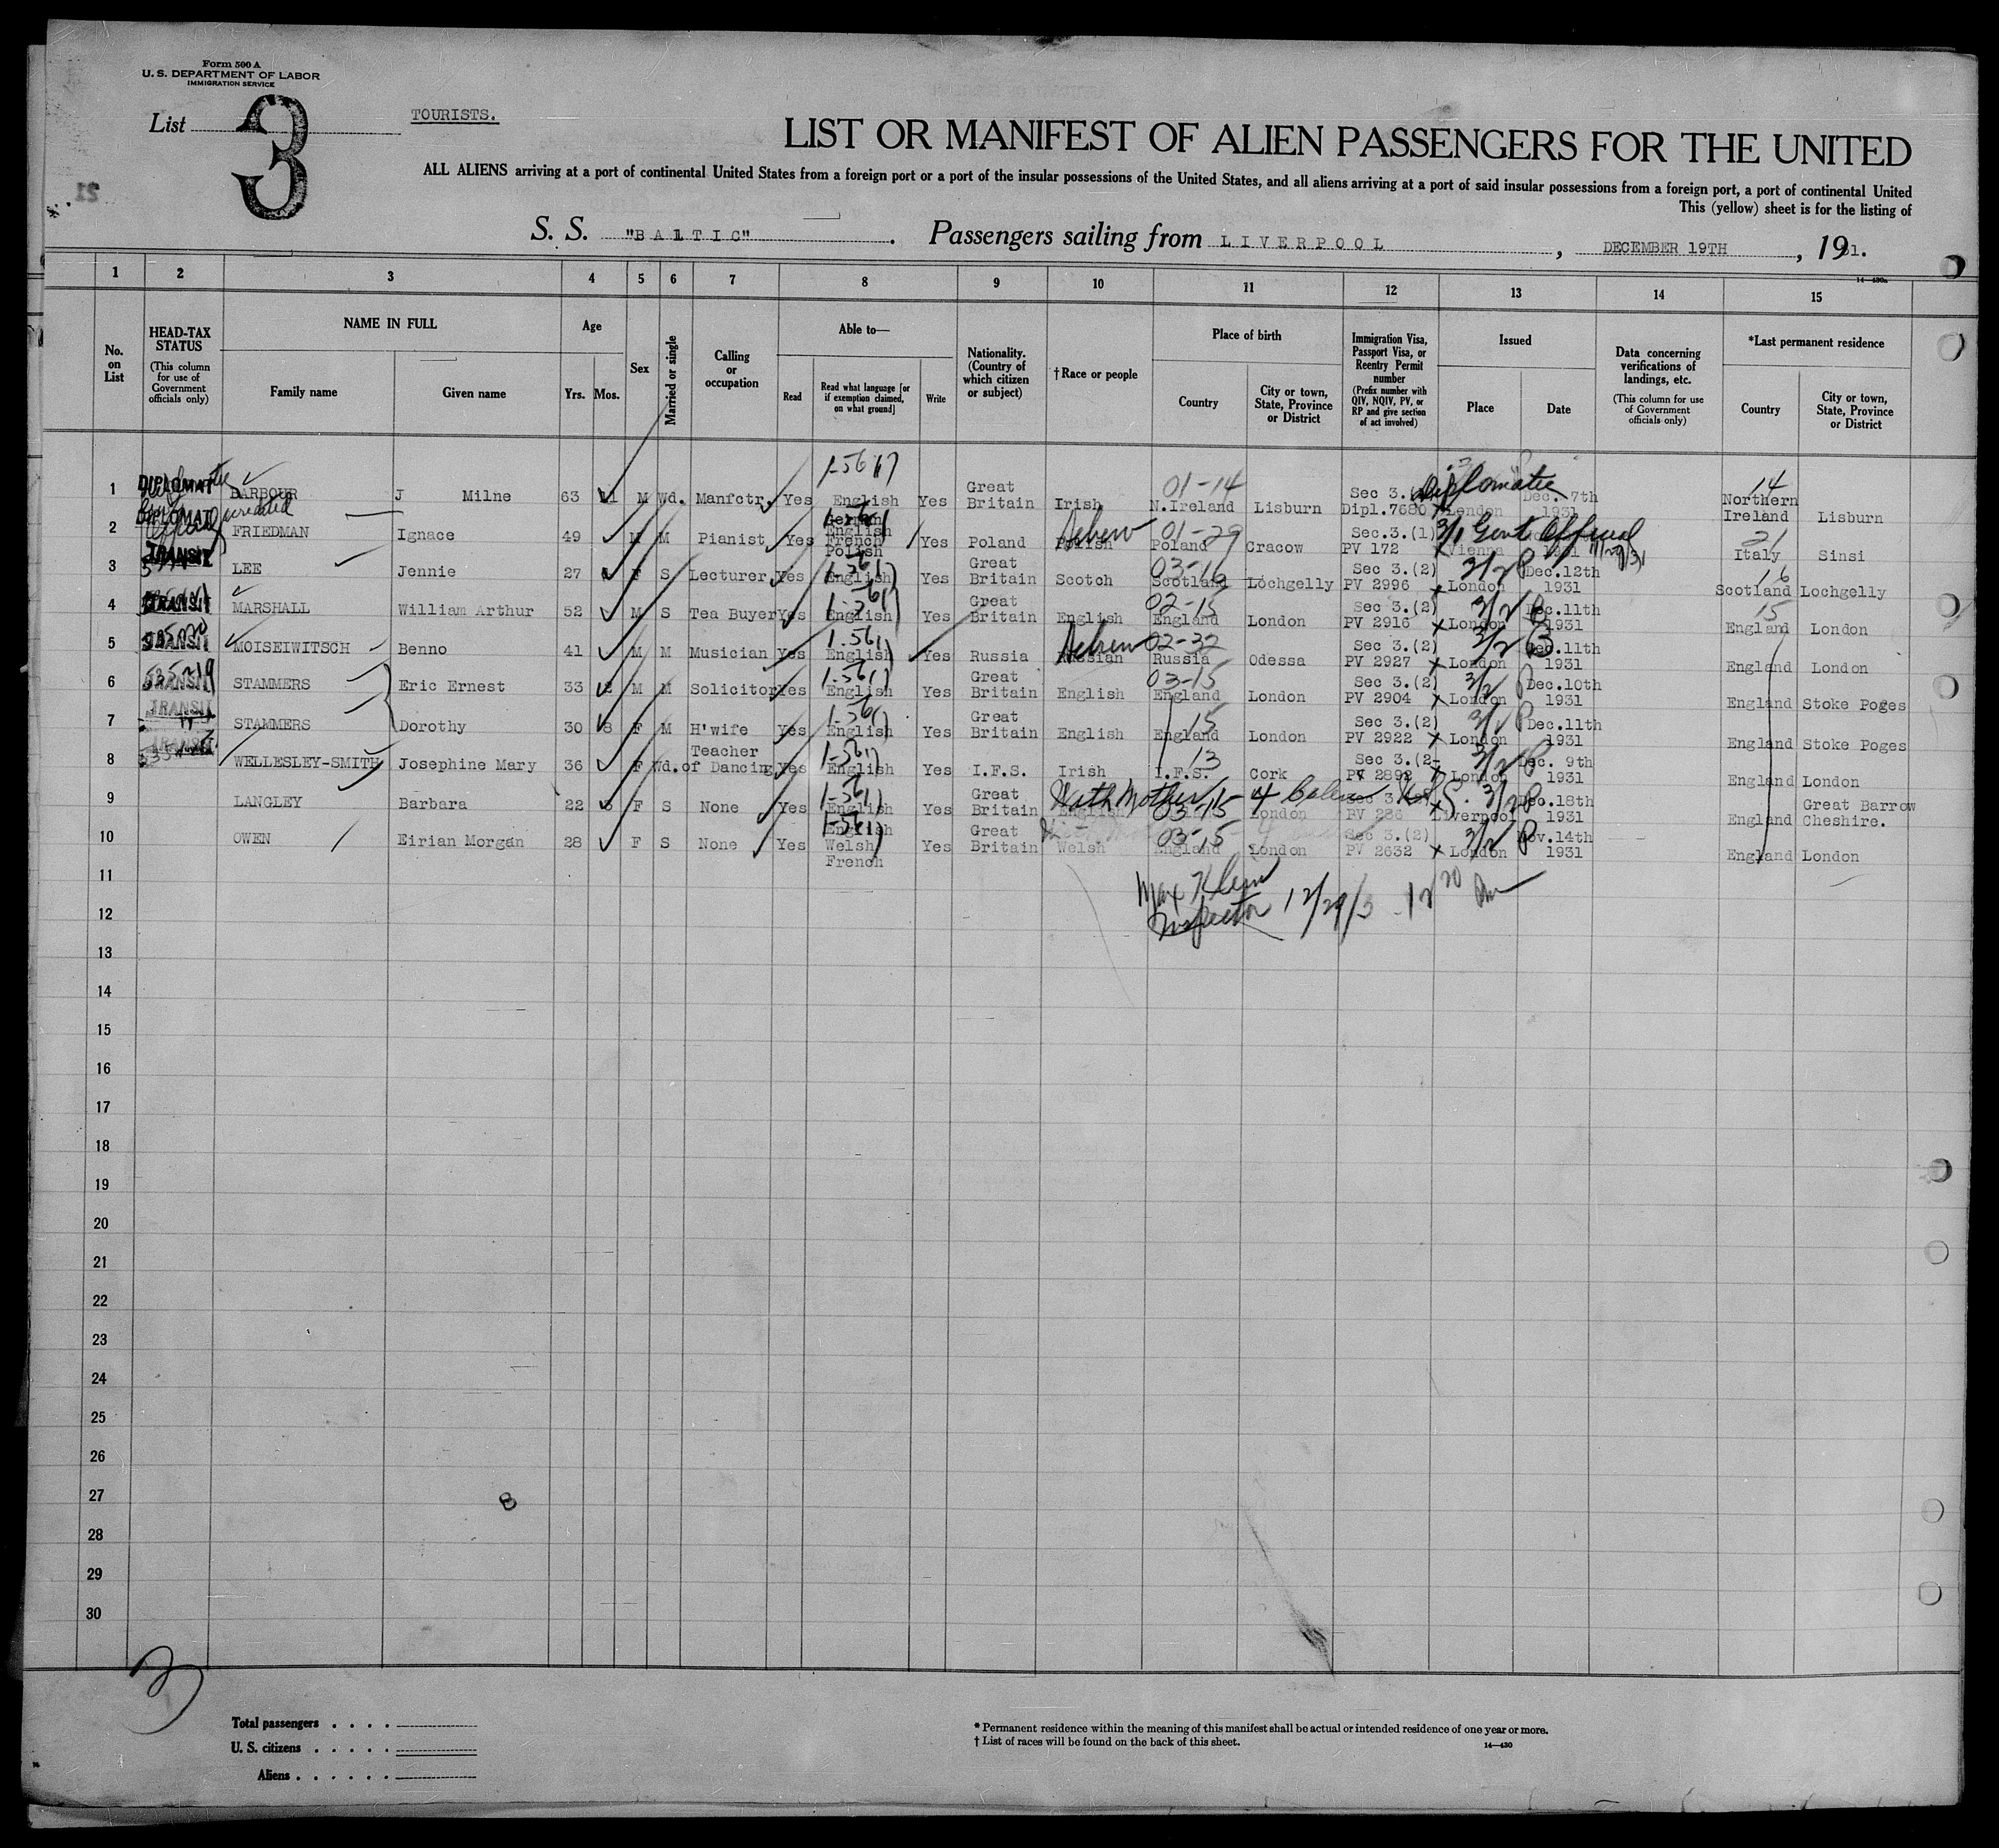 Form 500 A
U. S. DEPARTMENT OF LABOR
IMMIGRATION SERVICE
List 3
TOURISTS.
LIST OR MANIFEST OF ALIEN PASSENGERS FOR THE UNITED
ALL ALIENS arriving at a port of continental United States from a foreign port or a port of the insular possessions of the United States, and all aliens arriving at a port of said insular possessions from a foreign port, a port of continental United
This (yellow) sheet is for the listing of
S. S. "BALTIC". Passengers sailing from LIVERPOOL, DECEMBER 19TH, 1931.
14—430a
1 2 3 4 5 6 7 8 9 10 11 12 13 14 15
No. on List
HEAD-TAX STATUS (This column for use of Government officials only)
NAME IN FULL Family name Given name
Age Yrs. Mos.
Sex
Married or single
Calling or occupation
Able to— Read Read what language [or if exemption claimed, on what ground] Write
Nationality. (Country of which citizen or subject)
†Race or people
Place of birth Country City or town, State, Province or District
Immigration Visa, Passport Visa, or Reentry Permit number (Prefix number with QIV, NQIV, PV, or RP and give section of act involved)
Issued Place Date
Data concerning verifications of landings, etc. (This column for use of Government officials only)
*Last permanent residence Country City or town, State, Province or District
1 DIPLOMAT BARBOUR J Milne 63 11 M Wd. Manfctr. Yes English Yes Great Britain Irish 01-14 N.Ireland Lisburn Sec 3. Dipl.7680 Diplomatic London Dec. 7th 1931 14 Northern Ireland Lisburn
2 DIPLOMAT FRIEDMAN Ignace 49 M M Pianist Yes German English French Polish Yes Poland Polish Hebrew 01-29 Poland Cracow Sec.3.(1) PV 172 3/1 Govt Official Vienna 21 Italy Sinsi
3 TRANSIT LEE Jennie 27 F S Lecturer Yes English Yes Great Britain Scotch 03-16 Scotland Lochgelly Sec 3.(2) PV 2996 London 3/2 Dec.12th 1931 16 Scotland Lochgelly
4 TRANSIT MARSHALL William Arthur 52 M S Tea Buyer Yes English Yes Great Britain English 02-15 England London Sec 3.(2) PV 2916 London 3/2 Dec.11th 1931 15 England London
5 TRANSIT MOISEIWITSCH Benno 41 M M Musician Yes English Yes Russia Russian Hebrew 02-32 Russia Odessa Sec 3.(2) PV 2927 London 3/2 Dec.11th 1931 England London
6 TRANSIT STAMMERS Eric Ernest 33 M M Solicitor Yes English Yes Great Britain English 03-15 England London Sec 3.(2) PV 2904 London 3/2 Dec.10th 1931 England Stoke Poges
7 TRANSIT STAMMERS Dorothy 30 8 F M H'wife Yes English Yes Great Britain English 15 England London Sec 3.(2) PV 2922 London Dec.11th 1931 England Stoke Poges
8 TRANSIT WELLESLEY-SMITH Josephine Mary 36 F Wd. Teacher of Dancing Yes English Yes I.F.S. Irish 13 I.F.S. Cork Sec 3.(2- PV 2892 London 3/2 Dec. 9th 1931 England London
9 LANGLEY Barbara 22 F S None Yes English Yes Great Britain English 03-15 England London Liverpool 3/2 Dec.18th 1931 England Great Barrow Cheshire.
10 OWEN Eirian Morgan 28 F S None Yes English Welsh French Yes Great Britain Welsh 03-15 England London Sec 3.(2) PV 2632 London 3/2 Nov.14th 1931 England London
Inspector
11
12
13
14
15
16
17
18
19
20
21
22
23
24
25
26
27
28
29
30
Total passengers
U. S. citizens
Aliens
* Permanent residence within the meaning of this manifest shall be actual or intended residence of one year or more.
† List of races will be found on the back of this sheet.
14—430